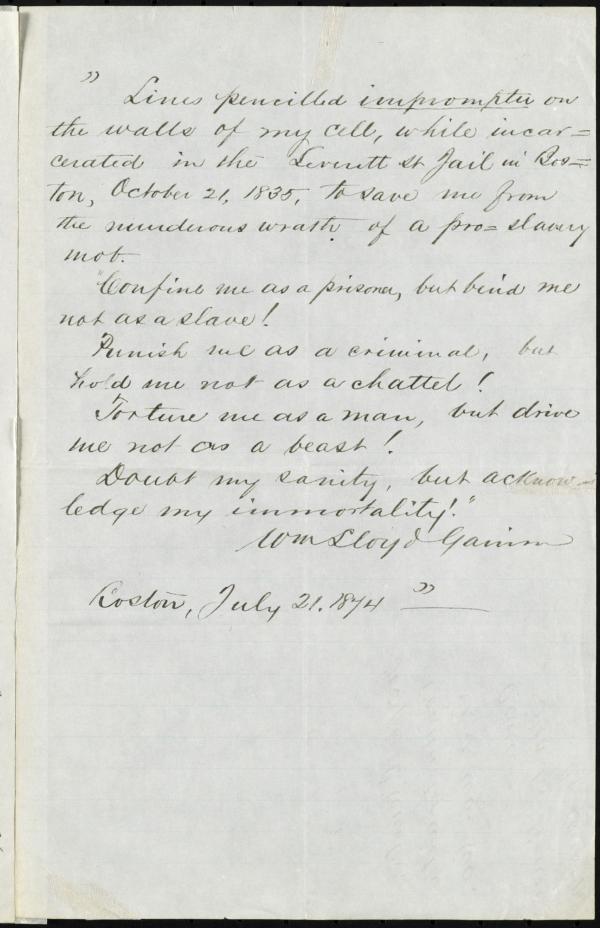 " Lines pencilled impromptu on
the walls of my cell, while incar=
cerated in the Leverett St Jail in Bos=
ton, October 21, 1835, to save me from
the murderous wrath of a pro=slavery
mob.
"Confine me as a prisoner, but bind me
not as a slave!
Punish me as a criminal, but
hold me not as a chattel!
Torture me as a man, but drive
me not as a beast!
Doubt my sanity, but acknow=
ledge my immortality!"
Wm Lloyd Garrison
Boston, July 21. 1874 "